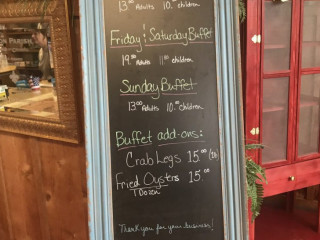 13.00 Adults 10.00 children
Friday & Saturday Buffet
19.00 Adults 11.00 children
Sunday Buffet
13.00 Adults 10.00 children
Buffet add-ons:
Crab Legs 15.00
Fried Oysters 15.00
1 Dozen
Thank you for your business!